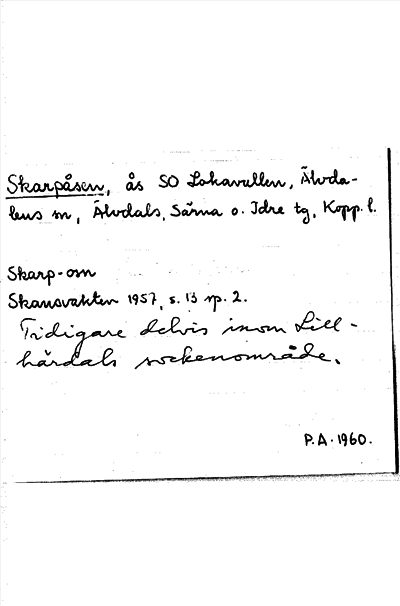 Skarpåsen, ås SO Lokavallen, Älvda-
lens sn, Älvdals, Särna o. Idre tg, Kopp. l.
Skarp-åsn
Skansvakten 1957, s. 13 sp. 2.
Tidigare delvis inom Lill-
härdals sockenområde.
P.A. 1960.